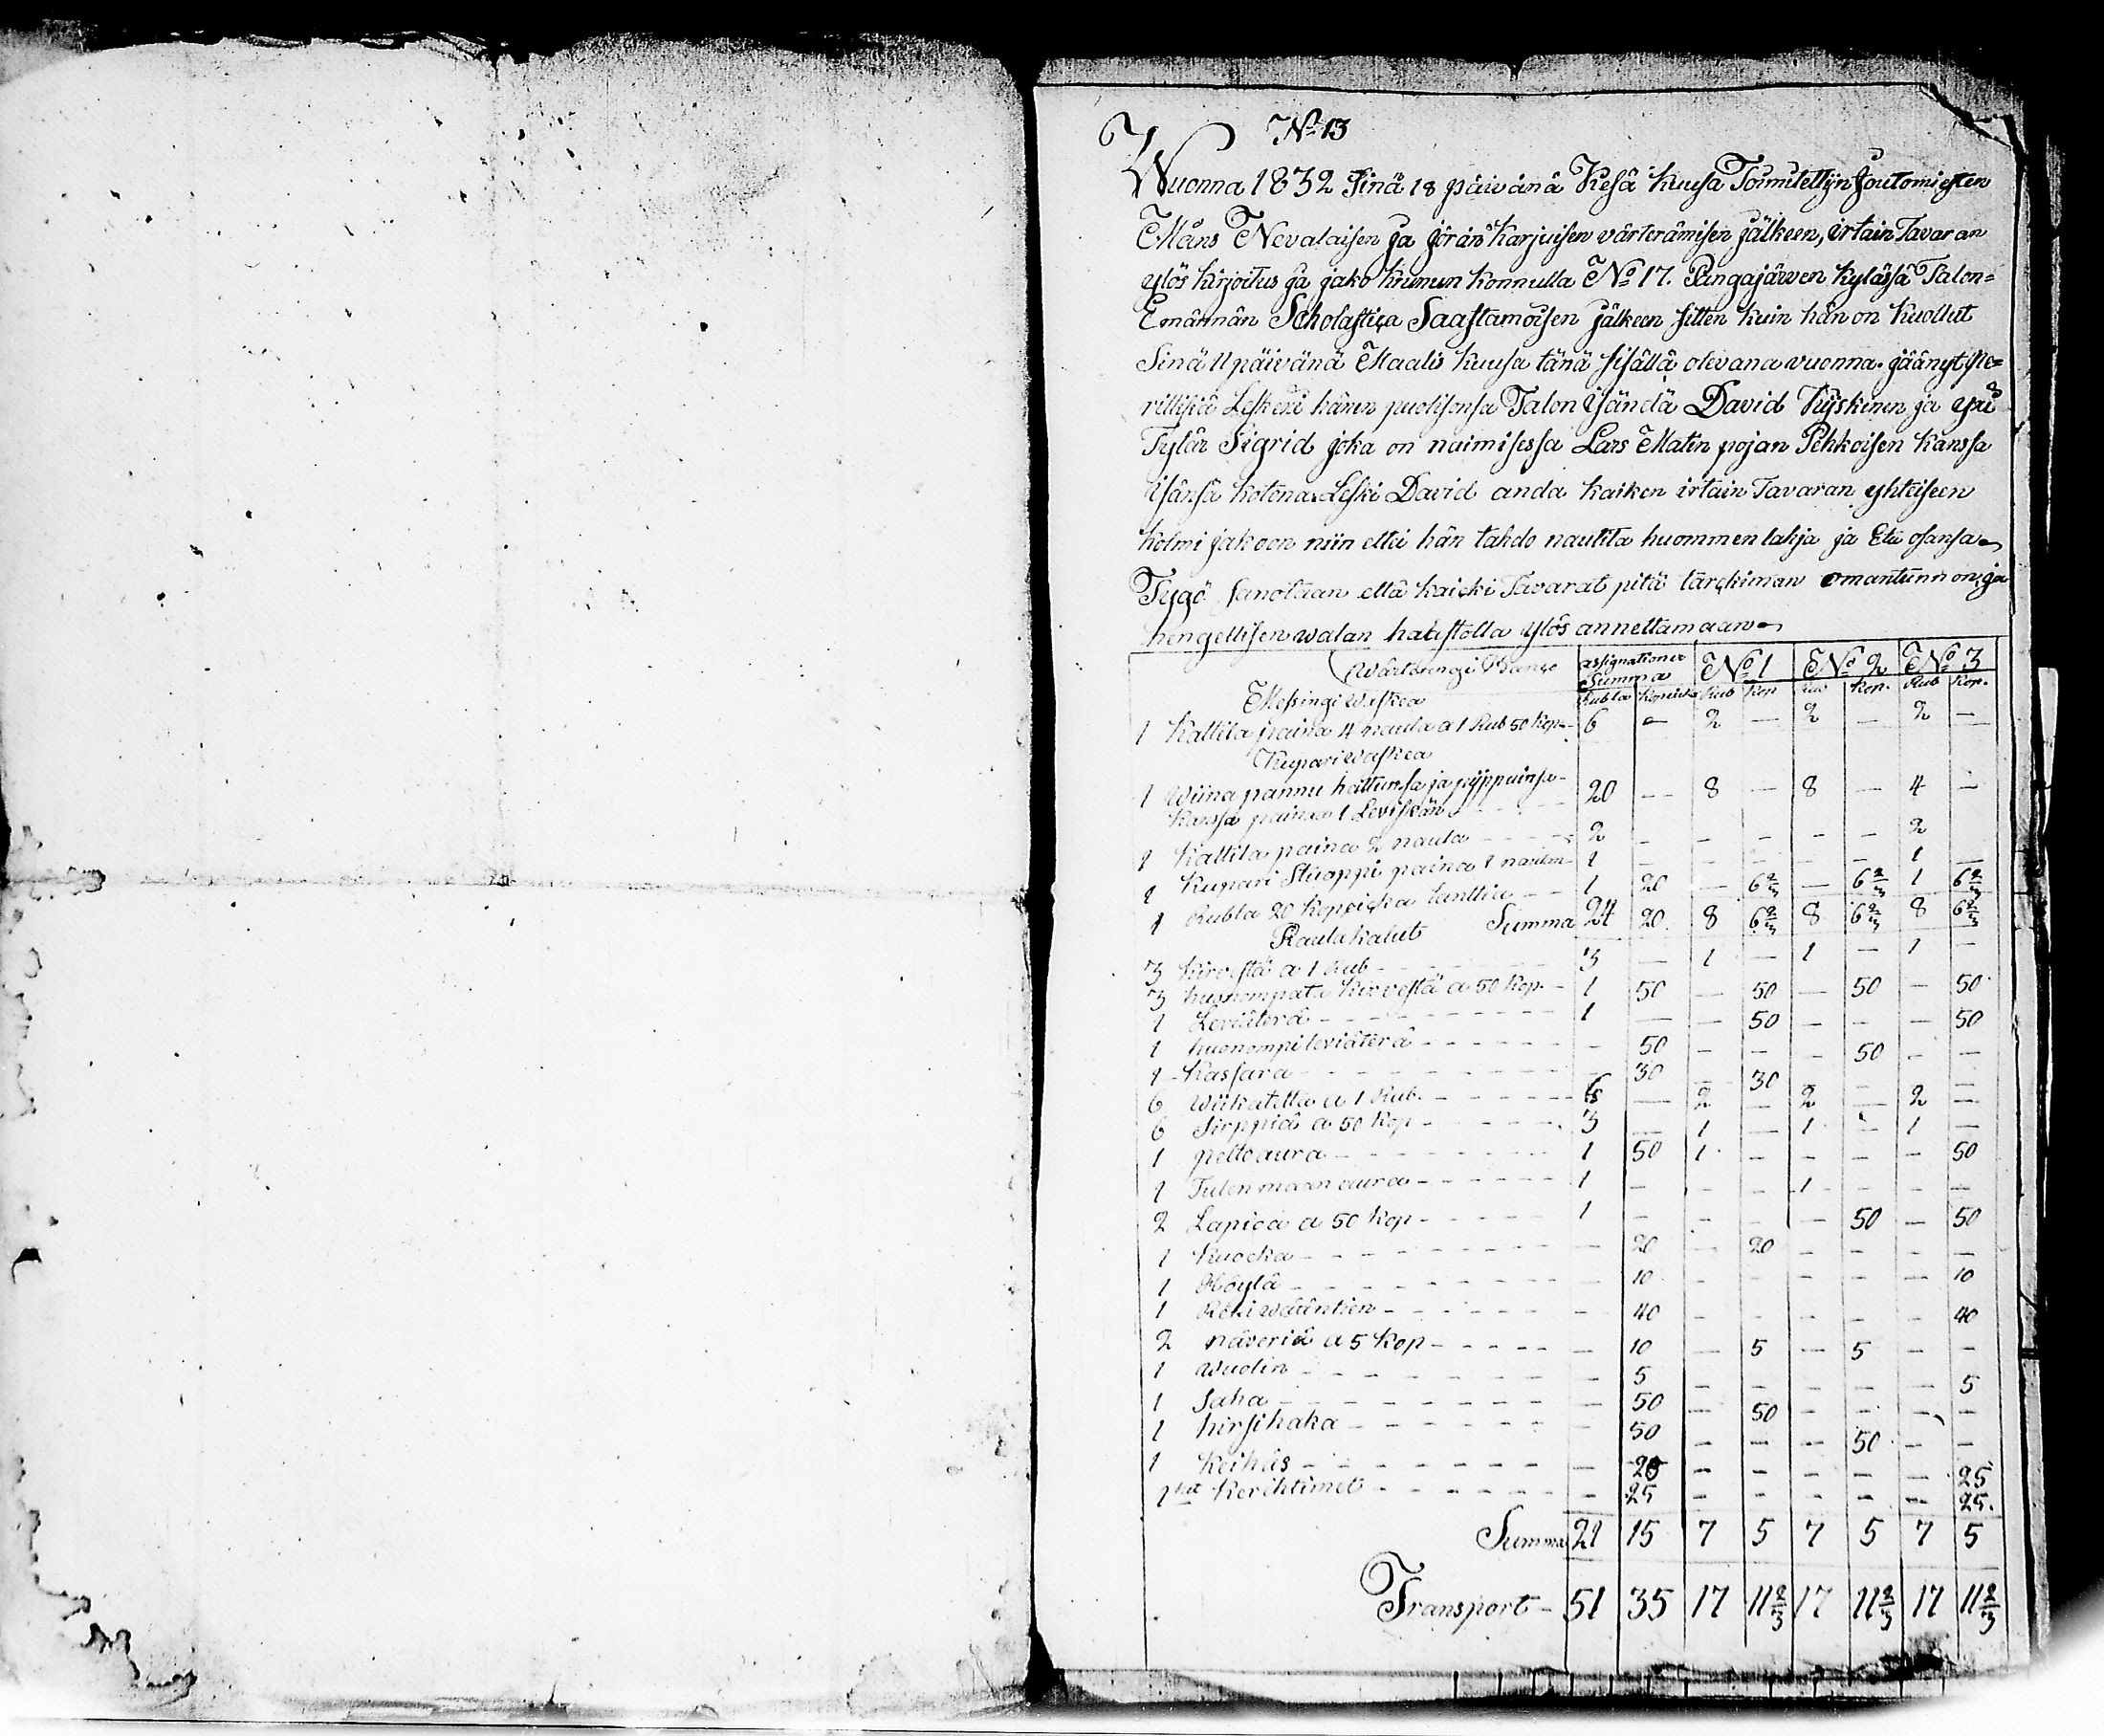 No 13
Wuonna 1832 Sinä 18 päivänä Kesä kuusa Toimitettijn Joutomiesten
Måns Nevalaisen ja Jöran Karjuisen värterämisen jälkeen, irtain Tavaran
ylös kirjoitus ja jako krunun konnulla No 17. Pangajärven kylässä Talon=
Emännän Scholastica Saastamoisen jälkeen sitten kuin hän on kuollut
Sinä 11 päivänä Maalis kuusa tänä sisällä olevana vuonna. jäänyt pe=
rillisiä Leskexi hänen puolisonsa Talon isändä David Kyskinen ja yxi
Tytär Sigrid joka on naimisessa Lars Matin pojan Pehkoisen kanssa
isänsä kotona. Leski David anda kaiken irtain Tavaran yhteiseen
kolmi jakoon niin ettei hän tahdo nautita huommen lahja ja Etu osansa
Tygö sanotaan että kaicki Tavarat pitä tarckiman omantunnon ja
hengellisen walan haastolla ylös annettamaan
assignationer Summa No 1 No 2 No 3
Messingi Waskea Rubla Kopeika Rub Kop Rub Kop. Rub Kop.
1 Kattila paina 4 naula a 1 Rub 50 Kop - 6 — 2 — 2 — 2 —
Kupari waskea
1 Wiina pannu hattunsa ja pijppuinsa -
kanssa painaa 1 Leviskän 20 — 8 — 8 — 4 —
1 Kattila paina 2 naula - - - - 2 - - - - - 2
1 Kupari Stroppi paina 1 naulan - 1 — - - - - 1 —
1 Rubla 20 Kopeicka lanttia - - 1 20 — 6 2/3 — 6 2/3 1 6 2/3
Rautakalut Summa 24 20. 8 6 2/3 8 6 2/3 8 6 2/3
3 Kirvestä a 1 Rub - - - - 3 — 1 — 1 — 1 —
3 huonompata kirvestä a 50 Kop. - 1 50 — 50 — 50 — 50
1 Leviäterä - - - - 1 — — 50 — - — 50
1 huonompi leviäterä - - - - - 50 - - - 50 - -
1 Kassara - - - - - 30 — 30 - - - —
6 Wiikatetta a 1 Rub. - - - - 6 — 2 — 2 — 2 —
6 Sirppiä a 50 Kop - - - - 3 — 1 — 1 - 1 —
1 pelto aura - - - - 1 50 1 - - - - 50
1 Tulen maan aura - - - - 1 - - - 1 - - -
2 Lapioa a 50 Kop - - - - 1 - - - - 50 — 50
1 Kuocka - - - - — 20 — 20 - - - —
1 Höylä - - - - - 10 - - - - — 10
1 - - - - — 40 - - - - - 40
2 näveriä a 5 Kop - - - - — 10 — 5 — 5 - -
1 Wuolin - - - - - 5 - - - - — 5
1 Saha - - - - - 50 — 50 - - - -
1 hirsihaka - - - - - 50 - - - 50 - -
1 Keihäs - - - - — 25 - - - - — 25
1 Kerihtimet - - - - - 25 - - - - - 25.
Summa 21 15 7 5 7 5 7 5
Transport - 51 35 17 11 2/3 17 11 2/3 17 11 2/3